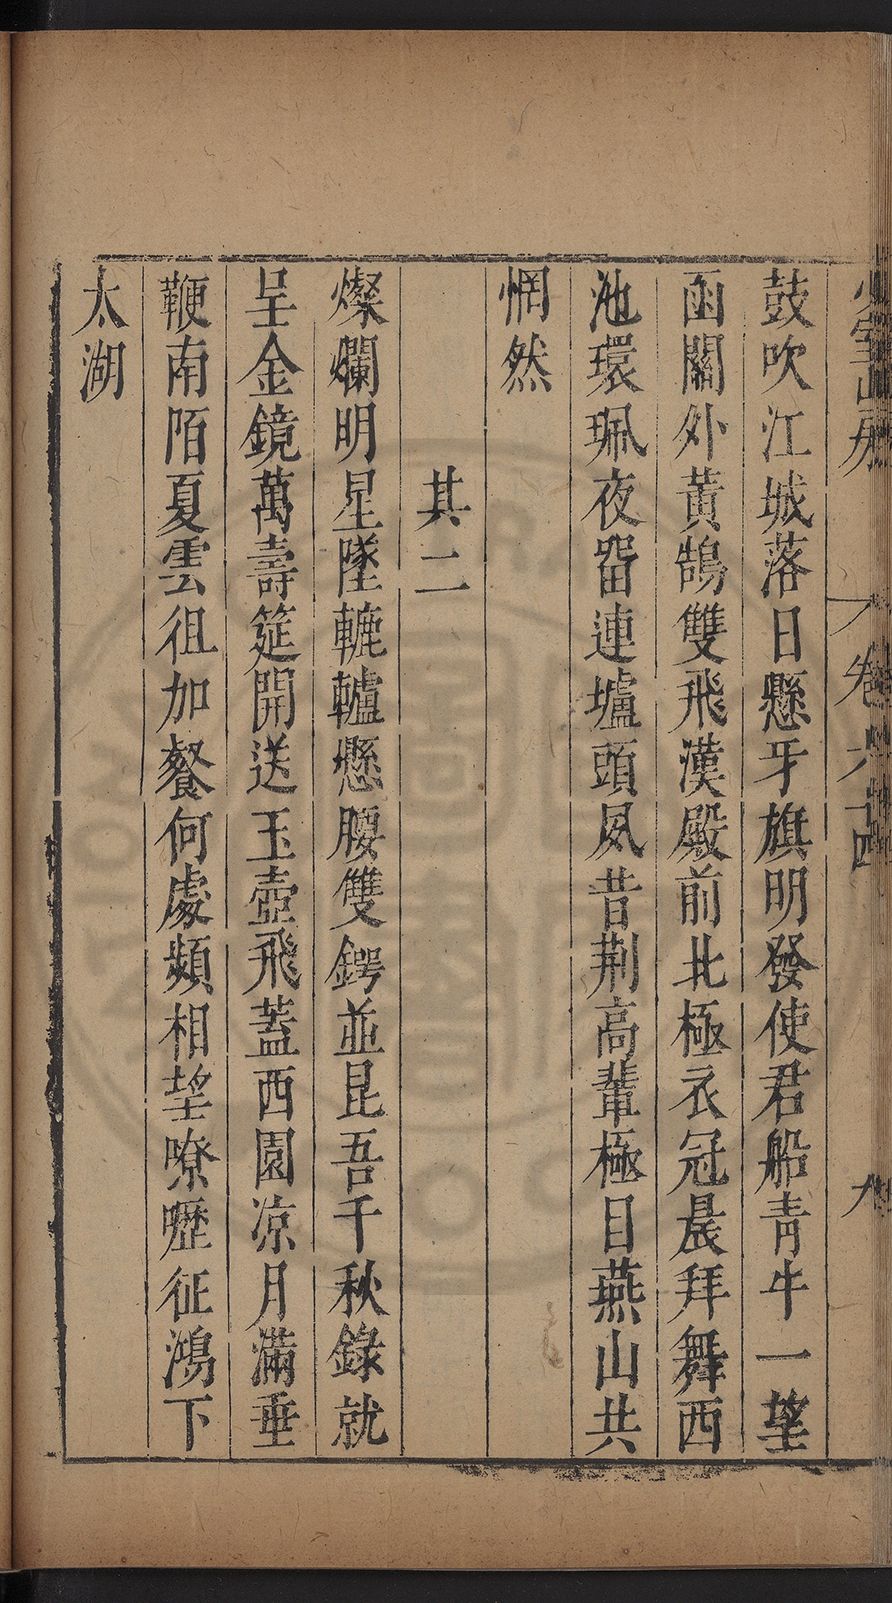 少室山房 卷六十四 九
鼓吹江城落日懸牙旗明發使君船青牛一望
函關外黃鵠雙飛漢殿前北極衣冠晨拜舞西
池環珮夜留連壚頭夙昔荆高輩極目燕山共
惘然
其二
燦爛明星墜轆轤懸腰雙鍔並昆吾千秋錄就
呈金鏡萬壽筵開送玉壺飛蓋西園凉月滿垂
鞭南陌夏雲徂加餐何處頻相望嘹嚦征鴻下
太湖